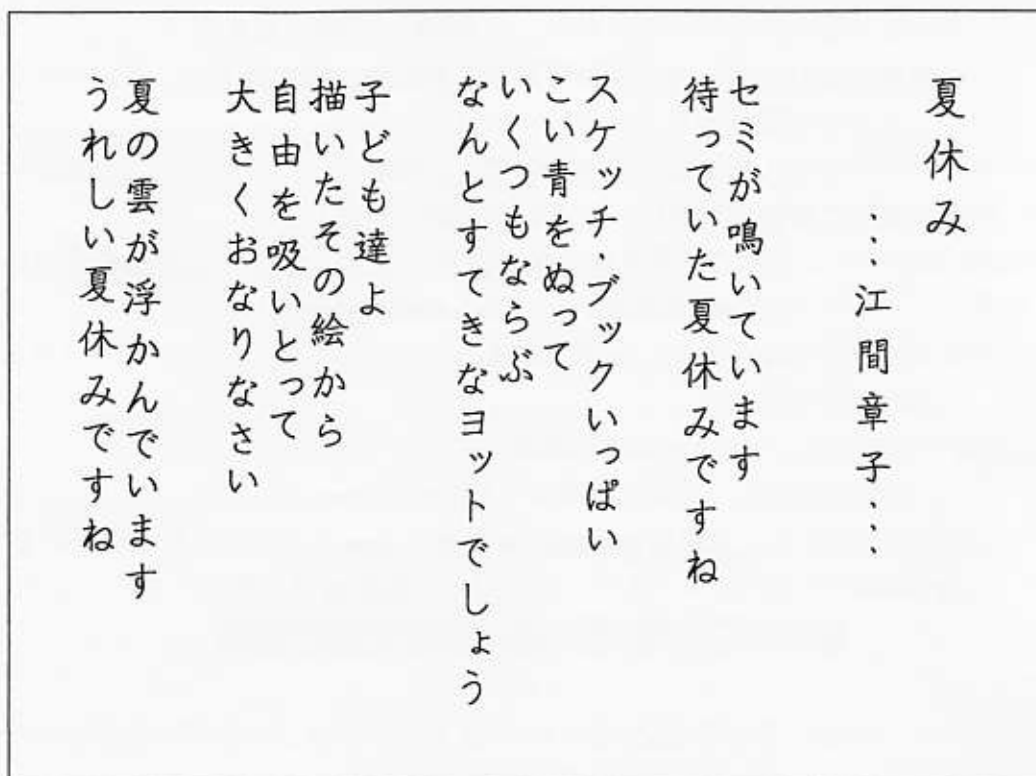 夏休み
・・・江間章子・・・
セミが鳴いています
待っていた夏休みですね
スケッチ・ブックいっぱい
こい青をぬって
いくつもならぶ
なんとすてきなヨットでしょう
子ども達よ
描いたその絵から
自由を吸いとって
大きくおなりなさい
夏の雲が浮かんでいます
うれしい夏休みですね